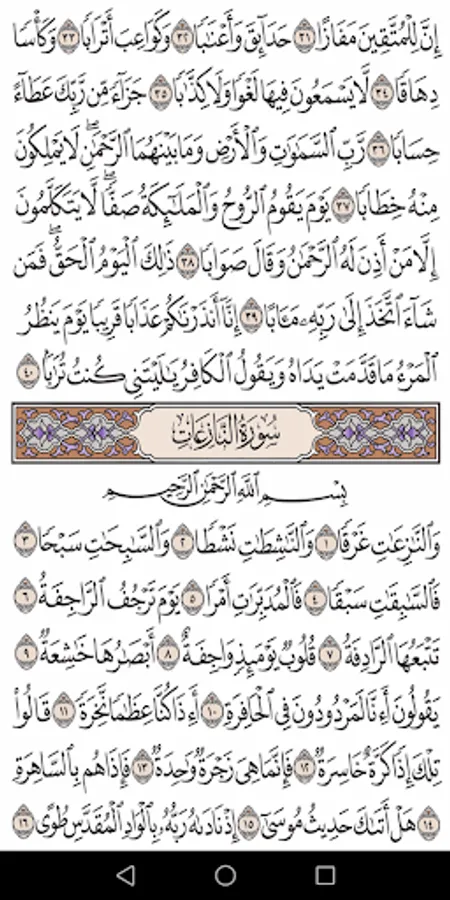 إِنَّ لِلْمُتَّقِينَ مَفَازًا ٣١ حَدَآئِقَ وَأَعْنَٰبًا ٣٢ وَكَوَاعِبَ أَتْرَابًا ٣٣ وَكَأْسًا
دِهَاقًا ٣٤ لَّا يَسْمَعُونَ فِيهَا لَغْوًا وَلَا كِذَّٰبًا ٣٥ جَزَآءً مِّن رَّبِّكَ عَطَآءً
حِسَابًا ٣٦ رَّبِّ ٱلسَّمَٰوَٰتِ وَٱلْأَرْضِ وَمَا بَيْنَهُمَا ٱلرَّحْمَٰنِۖ لَا يَمْلِكُونَ
مِنْهُ خِطَابًا ٣٧ يَوْمَ يَقُومُ ٱلرُّوحُ وَٱلْمَلَٰٓئِكَةُ صَفًّاۖ لَّا يَتَكَلَّمُونَ
إِلَّا مَنْ أَذِنَ لَهُ ٱلرَّحْمَٰنُ وَقَالَ صَوَابًا ٣٨ ذَٰلِكَ ٱلْيَوْمُ ٱلْحَقُّۖ فَمَن
شَآءَ ٱتَّخَذَ إِلَىٰ رَبِّهِۦ مَـَٔابًا ٣٩ إِنَّآ أَنذَرْنَٰكُمْ عَذَابًا قَرِيبًا يَوْمَ يَنظُرُ
ٱلْمَرْءُ مَا قَدَّمَتْ يَدَاهُ وَيَقُولُ ٱلْكَافِرُ يَٰلَيْتَنِى كُنتُ تُرَٰبًۢا ٤٠
سُورَةُ النَّازِعَاتِ
بِسْمِ ٱللَّهِ ٱلرَّحْمَٰنِ ٱلرَّحِيمِ
وَٱلنَّٰزِعَٰتِ غَرْقًا ١ وَٱلنَّٰشِطَٰتِ نَشْطًا ٢ وَٱلسَّٰبِحَٰتِ سَبْحًا ٣
فَٱلسَّٰبِقَٰتِ سَبْقًا ٤ فَٱلْمُدَبِّرَٰتِ أَمْرًا ٥ يَوْمَ تَرْجُفُ ٱلرَّاجِفَةُ ٦
تَتْبَعُهَا ٱلرَّادِفَةُ ٧ قُلُوبٌ يَوْمَئِذٍ وَاجِفَةٌ ٨ أَبْصَٰرُهَا خَٰشِعَةٌ ٩
يَقُولُونَ أَءِنَّا لَمَرْدُودُونَ فِى ٱلْحَافِرَةِ ١٠ أَءِذَا كُنَّا عِظَٰمًا نَّخِرَةً ١١ قَالُوا۟
تِلْكَ إِذًا كَرَّةٌ خَاسِرَةٌ ١٢ فَإِنَّمَا هِىَ زَجْرَةٌ وَٰحِدَةٌ ١٣ فَإِذَا هُم بِٱلسَّاهِرَةِ
١٤ هَلْ أَتَىٰكَ حَدِيثُ مُوسَىٰٓ ١٥ إِذْ نَادَىٰهُ رَبُّهُۥ بِٱلْوَادِ ٱلْمُقَدَّسِ طُوًى ١٦